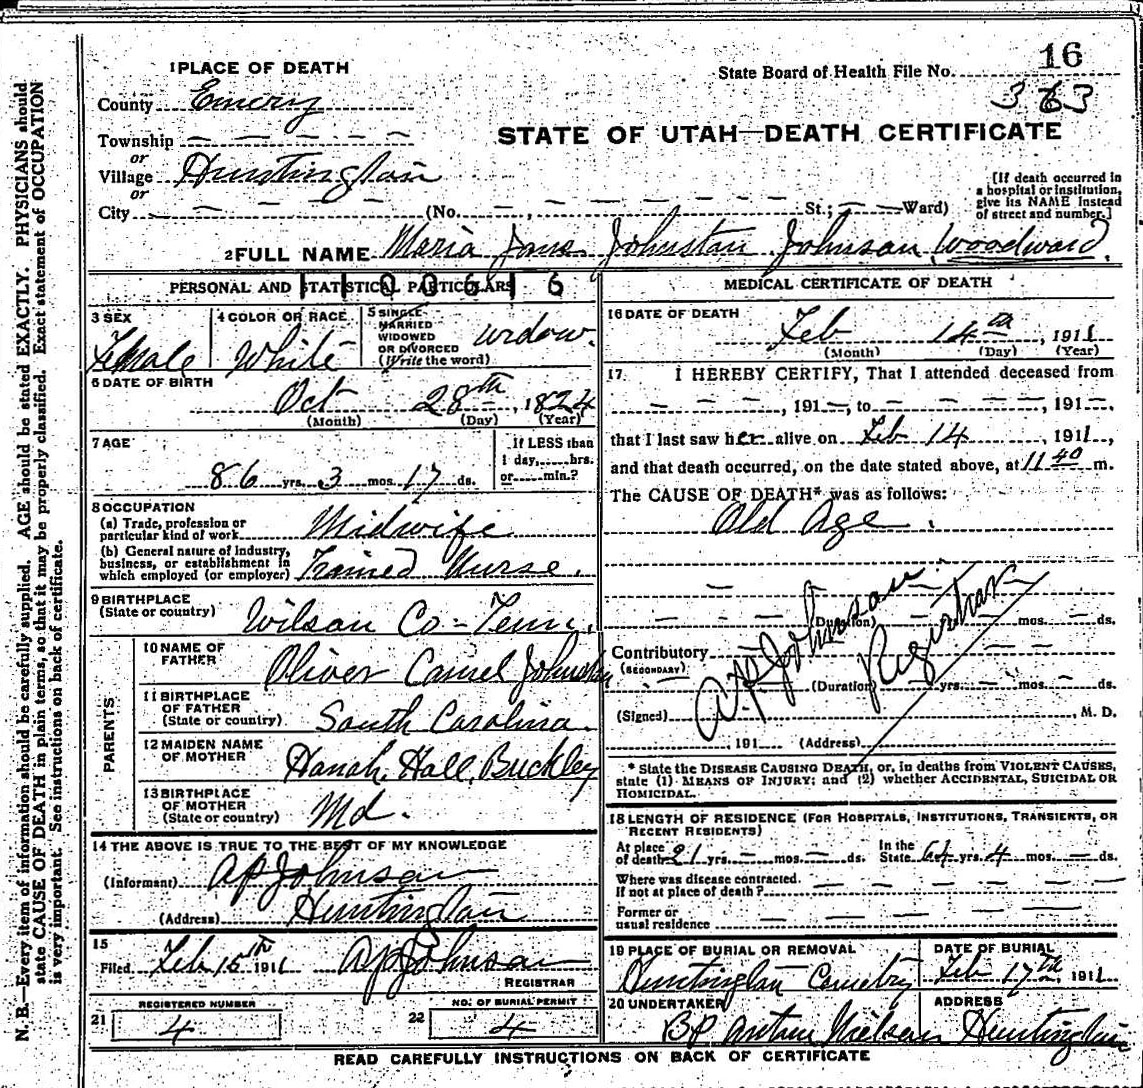 16
1 PLACE OF DEATH
State Board of Health File No.
363
County Emery
STATE OF UTAH—DEATH CERTIFICATE
Township — — — — — —
or
Village Huntington
or
City — — — — — (No. — , — — — — — — St.; — — Ward)
[If death occurred in
a hospital or institution,
give its NAME instead
of street and number.]
2 FULL NAME Maria Jane Johnston Johnson, Woodward.
PERSONAL AND STATISTICAL PARTICULARS
3 SEX Female
4 COLOR OR RACE White
5 SINGLE
MARRIED
WIDOWED
OR DIVORCED
(Write the word) widow.
6 DATE OF BIRTH
Oct 28th, 1824
(Month) (Day) (Year)
7 AGE
86 yrs. 3 mos. 17 ds.
If LESS than
1 day, hrs.
or min.?
8 OCCUPATION
(a) Trade, profession or
particular kind of work Midwife
(b) General nature of industry,
business, or establishment in
which employed (or employer) Trained Nurse.
9 BIRTHPLACE
(State or country) Wilson Co - Tenn.
PARENTS
10 NAME OF
FATHER Oliver Camel Johnston
11 BIRTHPLACE
OF FATHER
(State or country) South Carolina.
12 MAIDEN NAME
OF MOTHER Hanah Hall Buckley
13 BIRTHPLACE
OF MOTHER
(State or country) Md.
14 THE ABOVE IS TRUE TO THE BEST OF MY KNOWLEDGE
(Informant) AP Johnson
(Address) Huntington
15
Filed Feb 15th 1911 AP Johnson
REGISTRAR
REGISTERED NUMBER
21 4
NO. OF BURIAL PERMIT
22 4
MEDICAL CERTIFICATE OF DEATH
16 DATE OF DEATH
Feb 14th, 1911
(Month) (Day) (Year)
17 I HEREBY CERTIFY, That I attended deceased from
— — — — —, 191—, to — — — — —, 191—,
that I last saw her alive on Feb 14, 1911,
and that death occurred, on the date stated above, at 11 40 m.
The CAUSE OF DEATH* was as follows:
Old Age.
(Duration) mos. — ds.
Contributory
(SECONDARY)
(Duration) yrs. — mos. — ds.
(Signed) A.P. Johnson Registrar M. D.
191 (Address)
* State the DISEASE CAUSING DEATH, or, in deaths from VIOLENT CAUSES,
state (1) MEANS OF INJURY; and (2) whether ACCIDENTAL, SUICIDAL OR
HOMICIDAL.
18 LENGTH OF RESIDENCE (FOR HOSPITALS, INSTITUTIONS, TRANSIENTS, OR
RECENT RESIDENTS)
At place
of death 21 yrs. — mos. — ds.
In the
State 64 yrs. 4 mos. — ds.
Where was disease contracted.
If not at place of death? — — — — — —
Former or
usual residence — — — — —
19 PLACE OF BURIAL OR REMOVAL
Huntington Cemetry
DATE OF BURIAL
Feb 17th 1911
20 UNDERTAKER
BP Nielsen
ADDRESS
Huntington
READ CAREFULLY INSTRUCTIONS ON BACK OF CERTIFICATE
N. B.—Every item of information should be carefully supplied. AGE should be stated EXACTLY. PHYSICIANS should
state CAUSE OF DEATH in plain terms, so that it may be properly classified. Exact statement of OCCUPATION
is very important. See instructions on back of certificate.